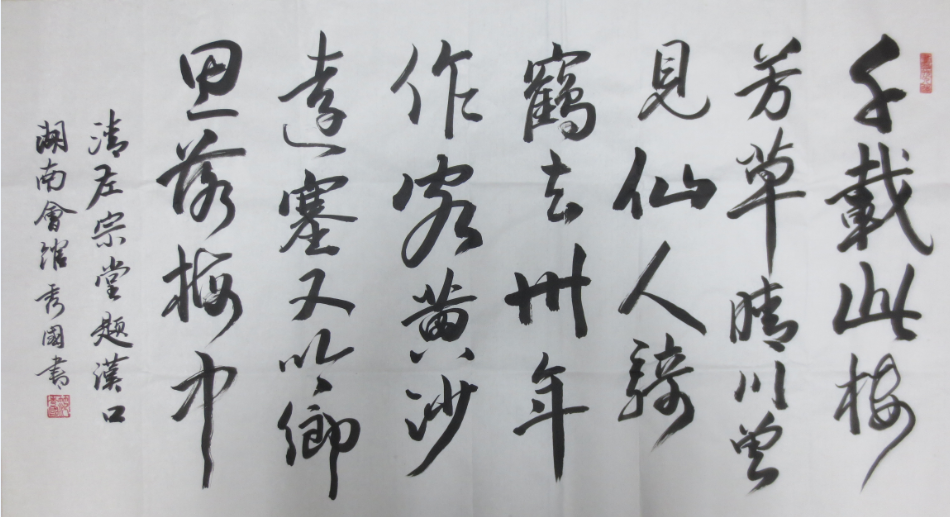 千載此樓
芳草晴川曾
見仙人騎
鶴去卅年
作客黄沙
遠塞又吟鄉
思落梅中
清左宗堂題漢口
湖南會館秀國書